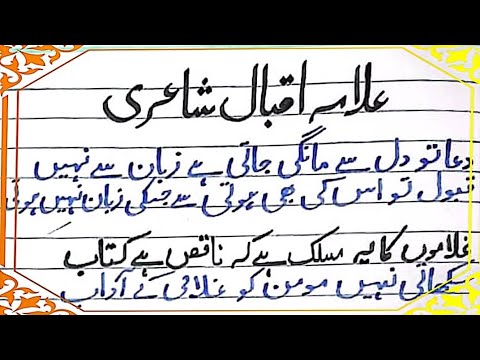 علامہ اقبال شاعری
دعا تو دل سے مانگی جاتی ہے زبان سے نہیں
قبول تو اس کی بھی ہوتی ہے جسکی زبان نہیں ہوتی
غلاموں کا یہ مسلک ہے کہ ناقص ہے کتاب
سکھاتی نہیں مومن کو غلامی کے آداب